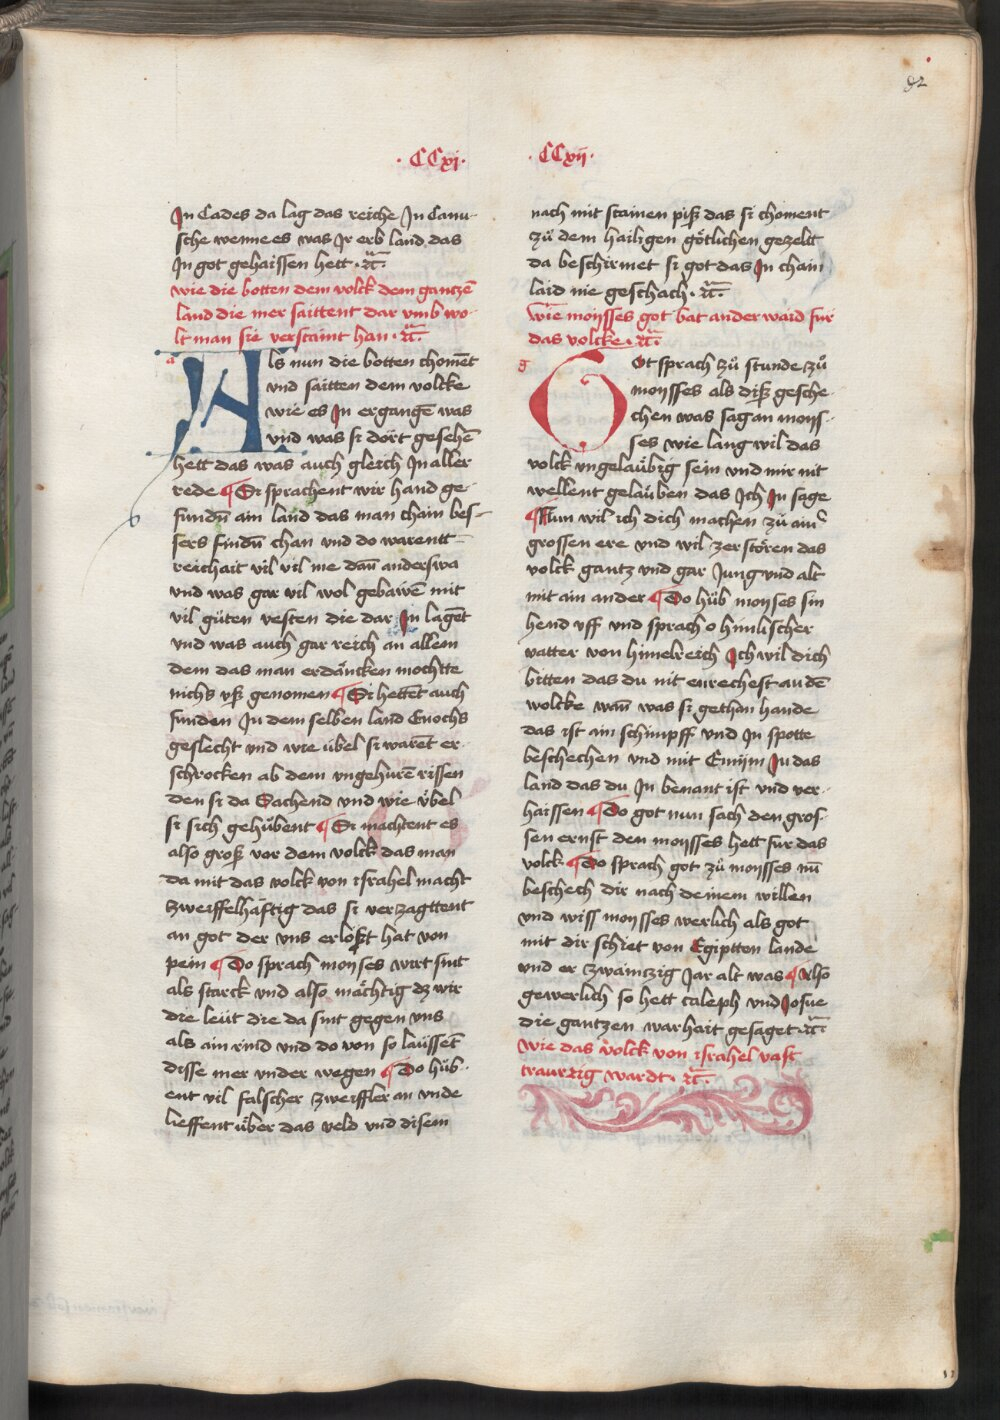 92
· CCxj ·
In Cades da lag das reiche In Canu-
sche wenne es was Ir erb land das
In got gehaissen hett · ꝛc̄ ·
wie die botten dem volck dem gantzē
land die mer saittent dar vmb wo-
lt man sie verstaint han · ꝛc̄ ·
Als nun die botten chomēt
vnd saitten dem volcke
wie es In ergangē was
vnd was si dort gesehē
hett das was auch gleich In aller
rede ¶ Si sprachent wir hand ge-
fundn̄ ain land das man chain bes-
sers findn̄ chan vnd do warentt
reichait vil vil me dan̄ anderswa
vnd was gar vil wol gebawē mit
vil gůten vesten die dar In lagēt
vnd was auch gar reich an allem
dem das man erdäncken mochtte
nichs vß genomen ¶ Si hettēt auch
funden In dem selben land Enochs
geslecht vnd wie übel si warēt er-
schrocken ab dem vngehurē rissen
den si da Sachend vnd wie übel
si sich gehübent ¶ Si machtent es
also groß vor dem volck das man
da mit das volck von israhel macht
zweiffelhäftig das si verzagttent
an got der vns erlößt hat von
pein ¶ Do sprach moyses wirt sint
als starck vnd also mächtig dz wir
die leüt die da sint gegen vns
als ain rind vnd do von so laüssēt
disse mer vnder wegen ¶ Do hüb-
ent vil falscher zweiffler an vnde
lieffent über das veld vnd disem
· CCxij ·
nach mit stainen piß das si choment
zü dem hailigen götlichen gezeltt
da beschirmet si got das In chain
laid nie geschach · ꝛc̄ ·
wie moysses got bat ander waid für
das volcke · ꝛc̄ ·
g
Got sprach zů stunde zů
moysses als diß gesche-
chen was sag an moys-
ses wie lang wil das
volck vngelaübig sein vnd mir nit
wellent gelauben das Ich In sage
¶ Nun wil ich dich machen zü ain
grossen ere vnd wil zerstören das
volck gantz vnd gar Jung vnd alt
mit ain ander ¶ Do hüb moyses sin
hend vff vnd sprach o himlischer
vatter von himelreich Ich wil dich
bitten das du nit enrechest an dē
volcke wan̄ was si gethan hande
das ist ain schimpff vnd In spotte
beschechen vnd mit Emijm In das
land das du In benant ist vnd ver-
haissen ¶ Do got nun sach den gros-
sen ernst den moysses hett fur das
volck ¶ Do sprach got zů moysses nū
beschech dir nach deinem willen
vnd wiss moysses werlich als got
mit dir schiet von Egiptten lande
vnd er zwaintzig Jar alt was ¶ Also
gewerlich so hett caleph vnd Josue
die gantzen warhait gesaget · ꝛc̄ ·
wie das volck von israhel vast
traurzig wardt · ꝛc̄ ·